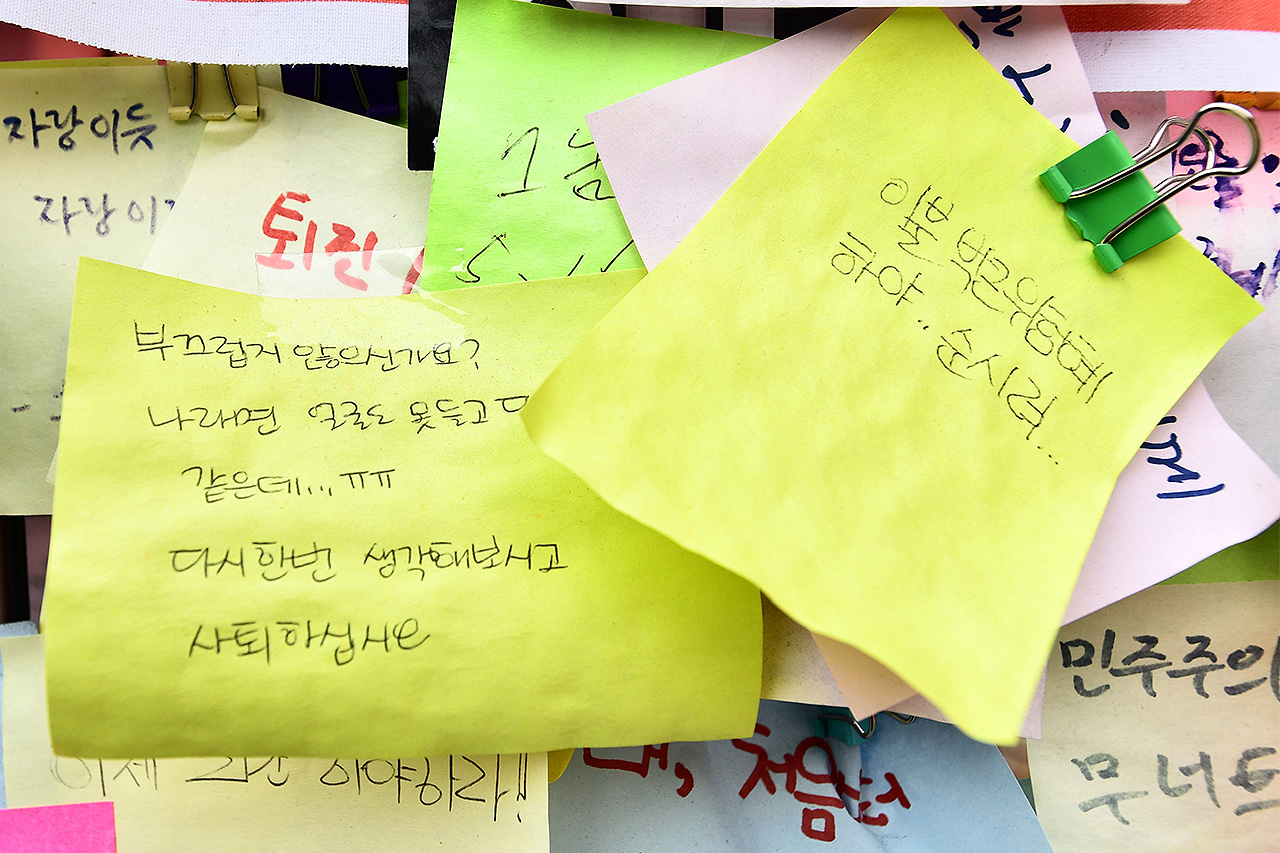 자랑이듯
자랑이
퇴진
1남
부끄럽지 않으신가요?
나라면 얼굴도 못들고
같은데...ㅠㅠ
다시한번 생각해보시고
사퇴하십시오
이불 박근위험혜
하야.. 순시려...
이제 그만 하야하라!!
대, 처음
민주주의
무너트